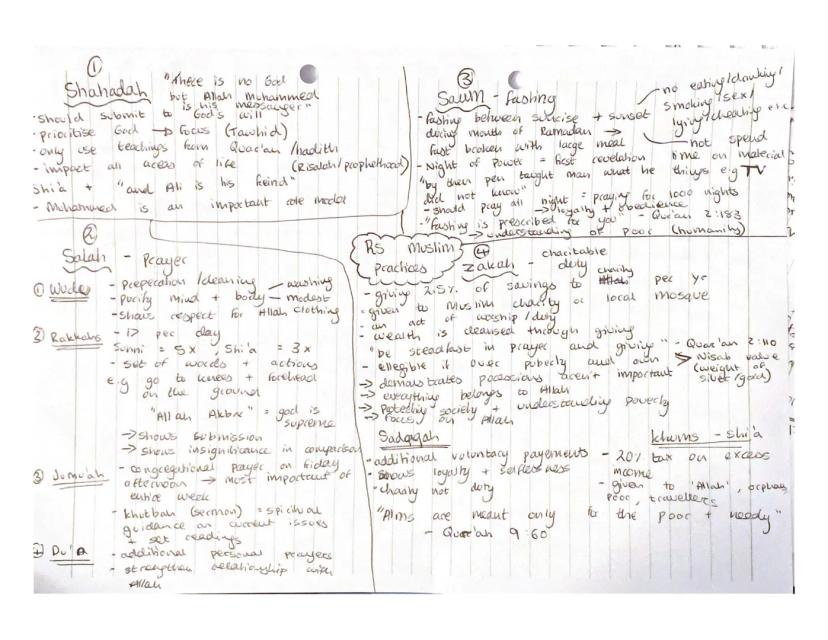 ①
Shahadah
"There is no God
but Allah Muhammed
is his messanger"
- should submit to God's will
- prioritise God → Focus (Tawhid)
- only use teachings from Quar'an /hadith
- impact all areas of life (Risalah/prophethood)
shi'a + "and Ali is his freind"
- Muhammed is an important role model
③
Sawm - Fasting
- Fasting between sunrise + sunset
during month of Ramadan →
fast broken with large meal
no eating/drinking/
smoking/sex/
lying/cheating etc
not spend
time on material
things e.g TV
- Night of Power = first revelation
"by then pen taught man what he
did not know"
- should pray all night = praying for 1000 nights
→ loyalty + obedience
- "Fasting is prescribed for you" - Qur'an 2:183
→ understanding of poor (humanity)
RS Muslim
practices
②
Salah - Prayer
① Wudu
- preperation /cleaning
- purify mind + body
washing
modest
clothing
- shows respect for Allah
② Rakkahs
- 17 per day
sunni = 5x, Shi'a = 3x
- set of words + actions
e.g go to knees + forehead
on the ground
"Allah Akbar" = god is
supreme
→ shows submission
→ shows insignificance in comparison
③ Jumu'ah
- congregational prayer on friday
afternoon → most important of
entire week
- khutbah (sermon) = spiritual
guidance on current issues
+ set readings
④ Du'a
- additional personal prayers
- strengthen relationship with
Allah
④
Zakah - charitable
duty
- giving 2.5% of savings to charity per yr
- given to Muslim charity or local mosque
- an act of worship /duty
- wealth is cleansed through giving
"be steadfast in prayer and giving" - Quar'an 2:110
- ellegible if over puberty and own
Nisab value
(weight of
silver/gold)
→ demonstrates possesions aren't important
→ everything belongs to Allah
→ Protecting society + understanding poverty
→ Focus on Allah
Sadqiqah
- additional voluntary payements
- shows loyalty + selflessness
- charity not duty
"Alms are meant only for the poor + needy"
- Quar'an 9:60
khums - shi'a
- 20% tax on excess
income
- given to 'Allah', orphans,
poor, travellers